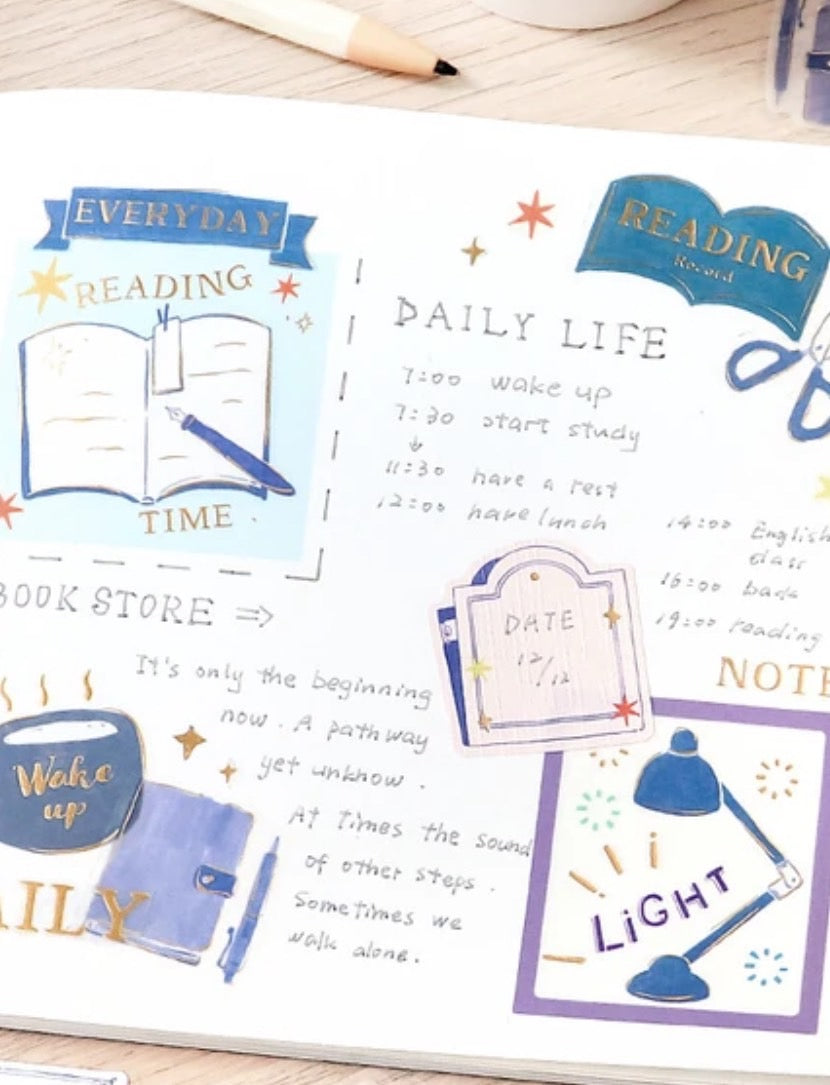 EVERYDAY
READING
TIME
BOOK STORE ⇒
READING
Record
DAILY LIFE
7:00 wake up
7:30 start study
↓
11:30 have a rest
12:00 have lunch
14:00 English
class
16:00
19:00 reading
DATE
12/12
It's only the beginning
now. A pathway
yet unknow.
At Times the sound
of other steps.
Sometimes we
walk alone.
Wake
up
AILY
NOTE
LiGHT